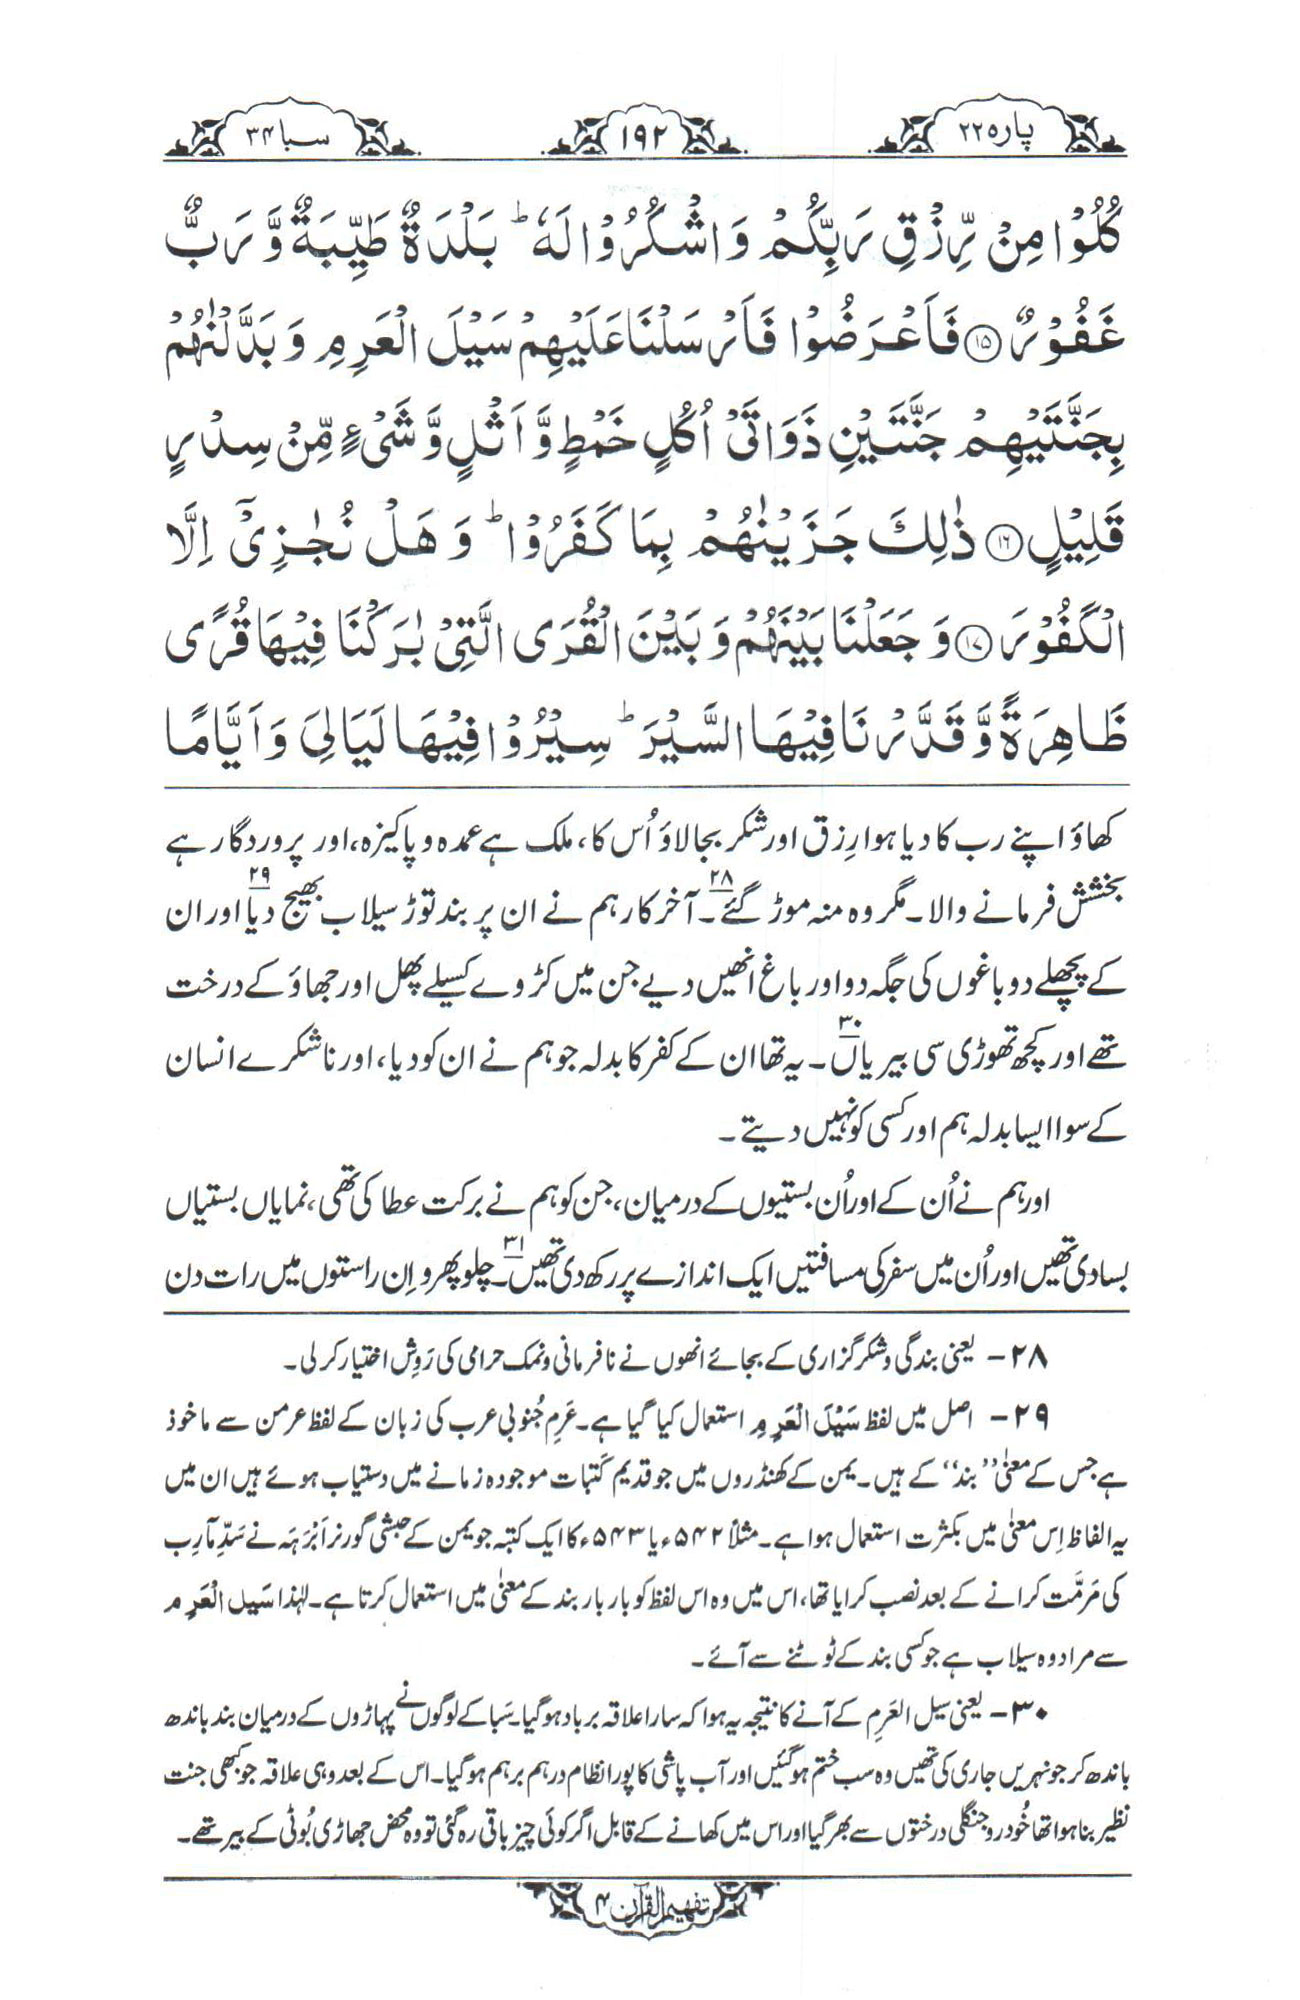 پارہ ۲۲
۱۹۲
سبا ۳۴
كُلُوْا مِنْ رِّزْقِ رَبِّكُمْ وَ اشْكُرُوْا لَهٗ ؕ بَلْدَةٌ طَيِّبَةٌ وَّ رَبٌّ
غَفُوْرٌ ۝۱۵ فَاَعْرَضُوْا فَاَرْسَلْنَا عَلَيْهِمْ سَيْلَ الْعَرِمِ وَ بَدَّلْنٰهُمْ
بِجَنَّتَيْهِمْ جَنَّتَيْنِ ذَوَاتَىْ اُكُلٍ خَمْطٍ وَّ اَثْلٍ وَّ شَىْءٍ مِّنْ سِدْرٍ
قَلِيْلٍ ۝۱۶ ذٰلِكَ جَزَيْنٰهُمْ بِمَا كَفَرُوْا ؕ وَ هَلْ نُجٰزِىْۤ اِلَّا
الْكَفُوْرَ ۝۱۷ وَ جَعَلْنَا بَيْنَهُمْ وَ بَيْنَ الْقُرَى الَّتِىْ بٰرَكْنَا فِيْهَا قُرًى
ظَاهِرَةً وَّ قَدَّرْنَا فِيْهَا السَّيْرَ ؕ سِيْرُوْا فِيْهَا لَيَالِىَ وَ اَيَّامًا
کھاؤ اپنے رب کا دیا ہوا رِزق اور شکر بجا لاؤ اُس کا، ملک ہے عمدہ و پاکیزہ، اور پروردگار ہے
بخشش فرمانے والا۔ مگر وہ منہ موڑ گئے۔۲۸ آخرکار ہم نے ان پر بند توڑ سیلاب بھیج دیا۲۹ اور ان
کے پچھلے دو باغوں کی جگہ دو اور باغ انھیں دیے جن میں کڑوے کسیلے پھل اور جھاؤ کے درخت
تھے اور کچھ تھوڑی سی بیریاں۳۰۔ یہ تھا ان کے کفر کا بدلہ جو ہم نے ان کو دیا، اور ناشکرے انسان
کے سوا ایسا بدلہ ہم اور کسی کو نہیں دیتے۔
اور ہم نے اُن کے اور اُن بستیوں کے درمیان، جن کو ہم نے برکت عطا کی تھی، نمایاں بستیاں
بسا دی تھیں اور اُن میں سفر کی مسافتیں ایک اندازے پر رکھ دی تھیں۳۱۔ چلو پھرو اِن راستوں میں رات دن
۲۸- یعنی بندگی و شکر گزاری کے بجائے انھوں نے نافرمانی و نمک حرامی کی رَوِش اختیار کر لی۔
۲۹- اصل میں لفظ سَیْلَ الْعَرِمِ استعمال کیا گیا ہے۔ عَرِم جُنوبی عرب کی زبان کے لفظ عرمن سے ماخوذ
ہے جس کے معنیٰ ”بند“ کے ہیں۔ یمن کے کھنڈروں میں جو قدیم کَتبات موجودہ زمانے میں دستیاب ہوئے ہیں ان میں
یہ الفاظ اِس معنیٰ میں بکثرت استعمال ہوا ہے۔ مثلاً ۵۴۲ء یا ۵۴۳ء کا ایک کتبہ جو یمن کے حبشی گورنر اَبْرَہَہ نے سَدِّ مآرِب
کی مَرمَّت کرانے کے بعد نصب کرایا تھا، اس میں وہ اس لفظ کو بار بار بند کے معنیٰ میں استعمال کرتا ہے۔ لہٰذا سَیل العَرِم
سے مراد وہ سیلاب ہے جو کسی بند کے ٹوٹنے سے آئے۔
۳۰- یعنی سیل العَرِم کے آنے کا نتیجہ یہ ہوا کہ سارا علاقہ برباد ہو گیا۔ سَبا کے لوگوں نے پہاڑوں کے درمیان بند باندھ
باندھ کر جو نہریں جاری کی تھیں وہ سب ختم ہو گئیں اور آب پاشی کا پورا نظام درہم برہم ہو گیا۔ اس کے بعد وہی علاقہ جو کبھی جنت
نظیر بنا ہوا تھا خُودرو جنگلی درختوں سے بھر گیا اور اس میں کھانے کے قابل اگر کوئی چیز باقی رہ گئی تو وہ محض جھاڑی بُوٹی کے بیر تھے۔
تفہیم القرآن ۴